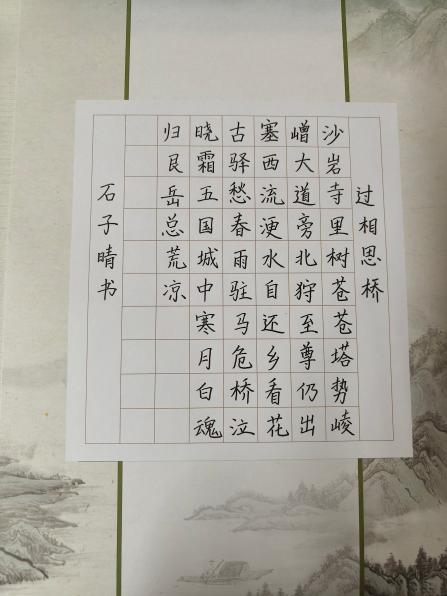 过相思桥
沙岩寺里树苍苍塔势崚
嶒大道旁北狩至尊仍出
塞西流浭水自还乡看花
古驿愁春雨驻马危桥泣
晓霜五国城中寒月白魂
归艮岳总荒凉
石子晴书